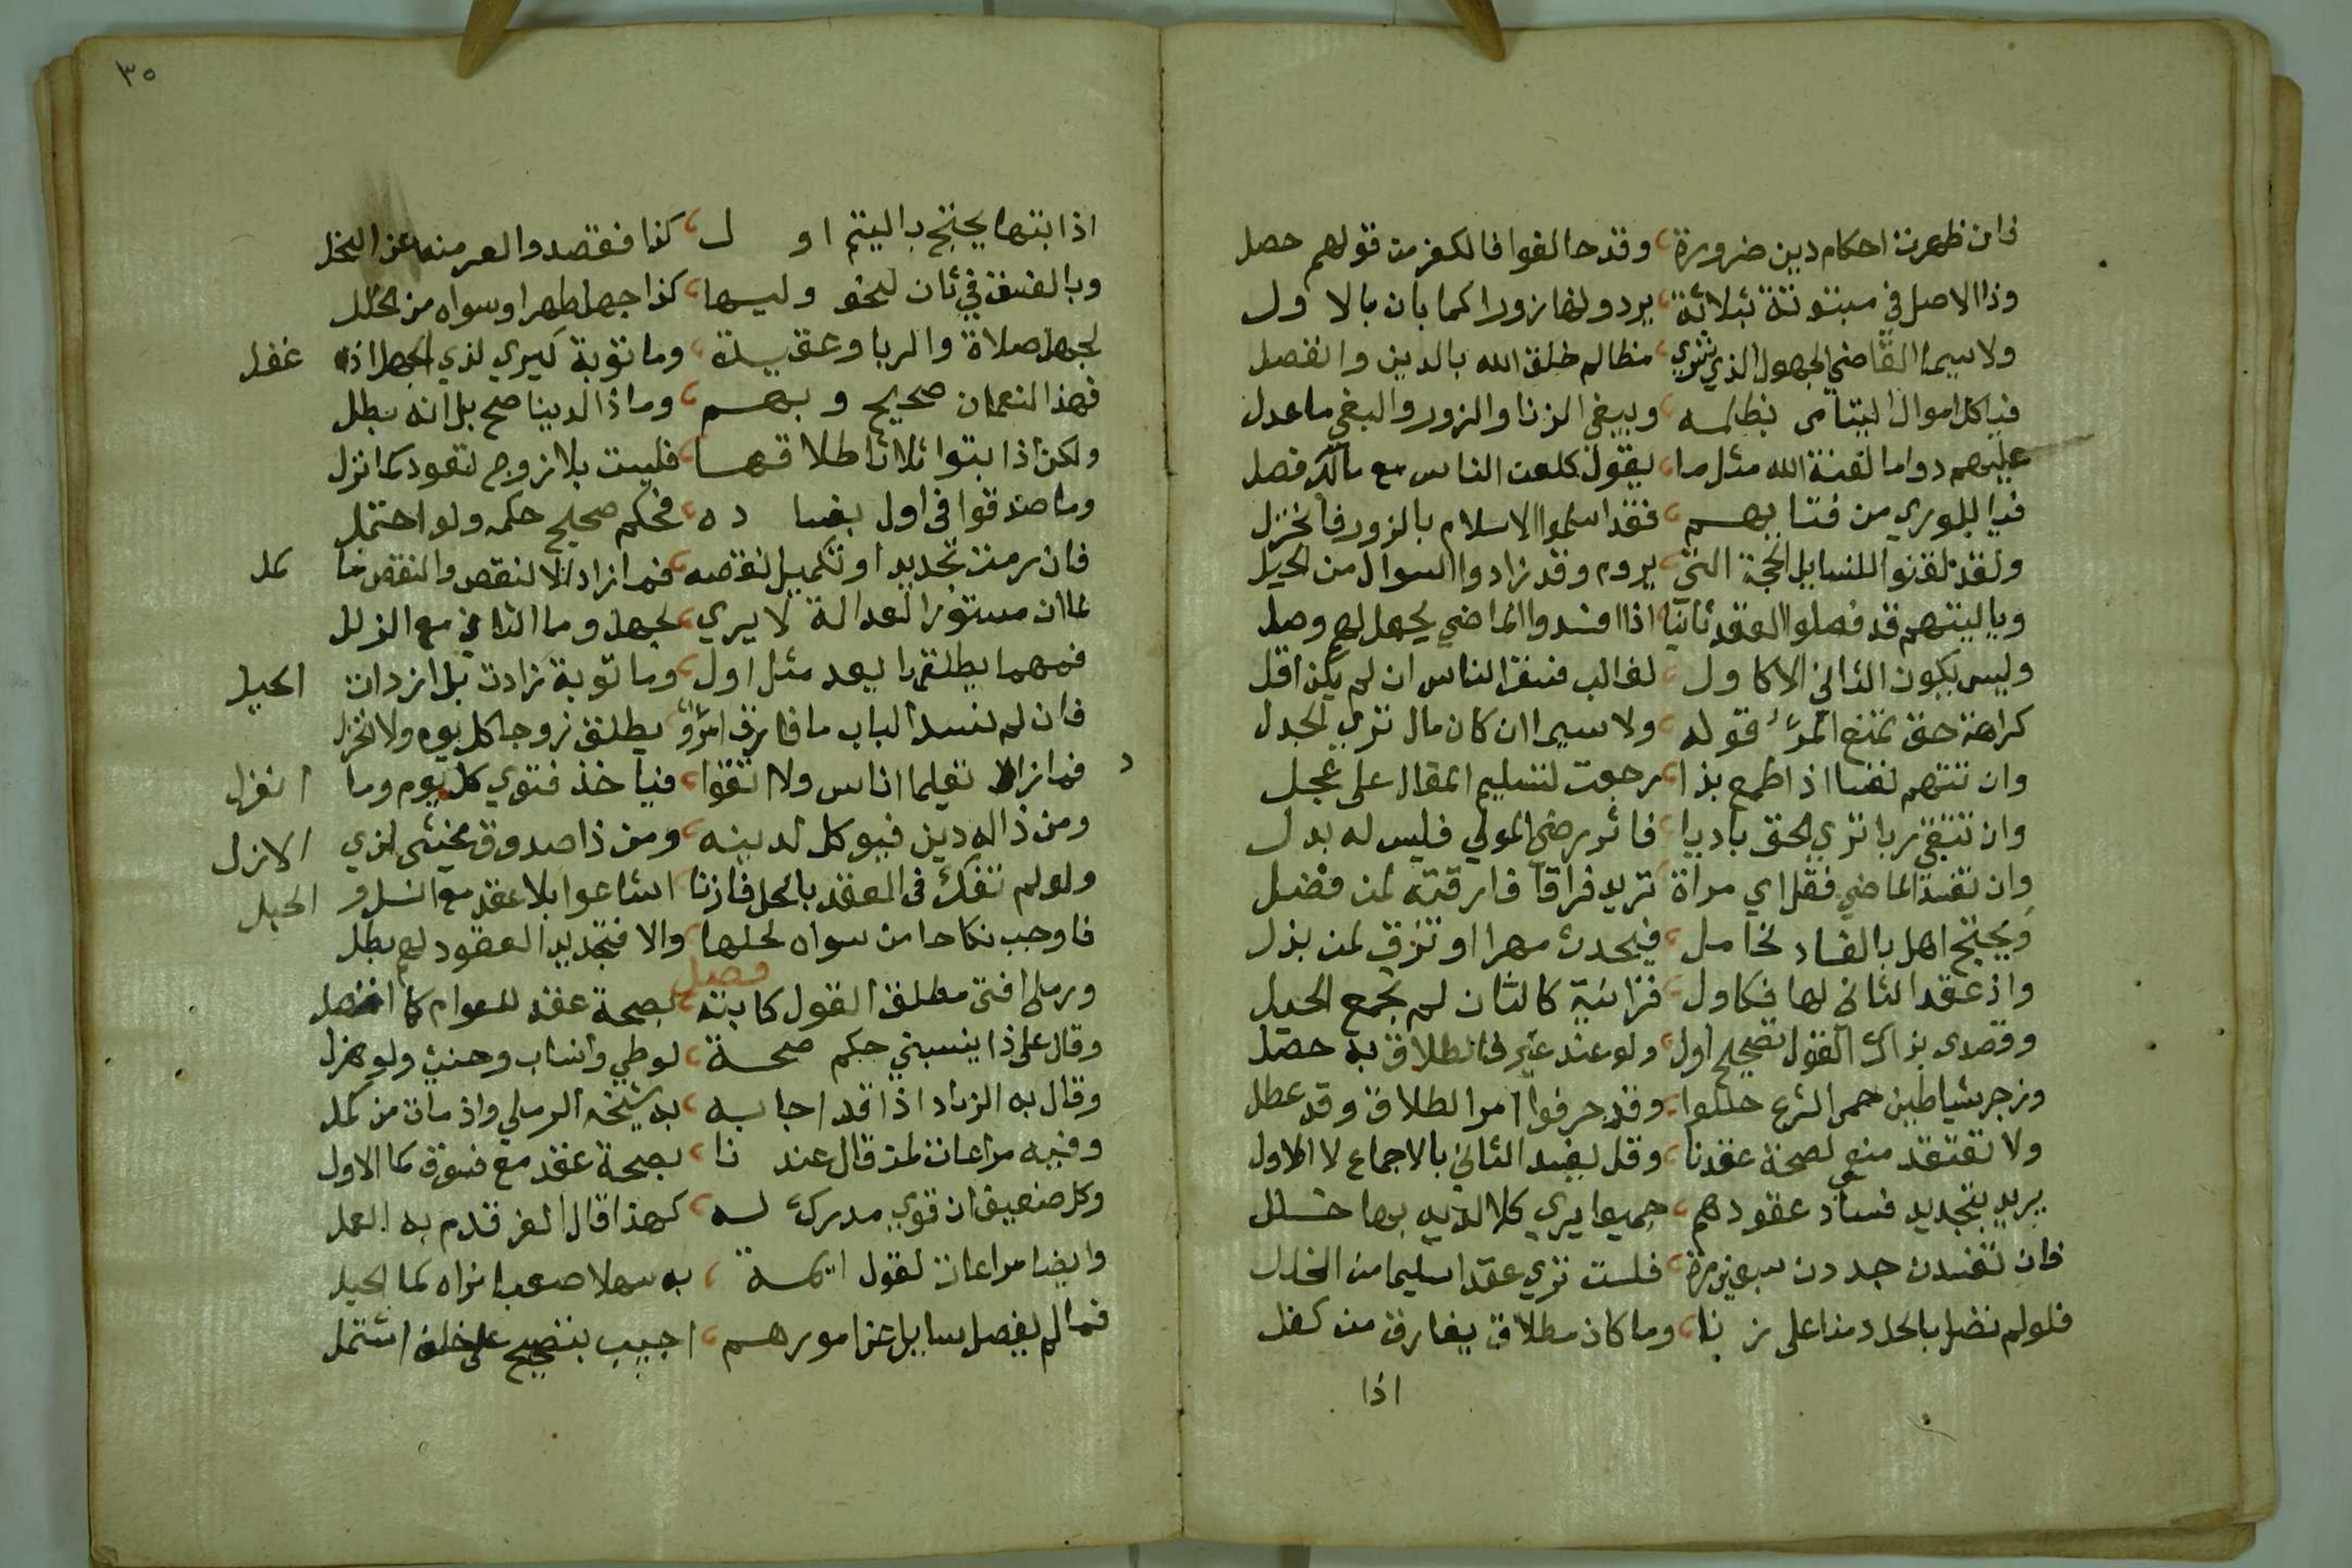 فان ظهرت احكام دين ضرورة، وقد حالفوا فالكفر من قولهم حصل
وذا الاصل في مبتوتة بثلاثة، يردونها زورا كما بان بالاول
ولاسيما القاضي الجهول الذي تري، مظالم خلق الله بالدين وانفصل
فياكل اموال اليتامى بظلمه، ويبغي الزنا والزور والبغي ما عدل
عليهم دواما لعنة الله مثل ما، يقول كلعت الناس مع مالك فصل
فيا للوري من فتابهم، فقد اسلموا الاسلام بالزور فانخزل
ولقد لقنوا للسايل الحجة التي، يروم وقد زادوا السوال من الحيل
ويا ليتهم قد فصلوا العقد ثانيا، اذا افسدوا الماضي بجهل لهم وصل
وليس يكون الثاني الا كاول، لغالب فسق الناس ان لم يكن اقل
كراهة حق تمنع المرء قوله، ولاسيما ان كان مال تري الجدل
وان تتهم نفسا اذا طمع بذا، رجعت لتسليم المقال على عجل
وان تتقي ربا تري الحق باديا، فاثر رضى المولي فليس له بدل
وان تفسد الماضي فقل اي مراة، تريد فراقا فارقته لمن فضل
ويحتج اهل بالفساد لخامل، فيحدث مهرا او تزف لمن بذل
واذ عقد الثاني لها فكاول، فزانية كالثان لم تجمع الحيل
وقصدى بذاك القول تصحيح اول، ولو عند غير فالطلاق به حصل
وزجر شياطين حمى الشرع حللوا، وقد حرفوا امر الطلاق وقد عطل
ولا تعتقد منعي لصحة عقدنا، وقل يفسد الثاني بالاجماع لا الاول
يريد بتجديد فساد عقودهم، جميعا يري كلا لديه بها خلل
فان تفسدن جددن سبعين مرة، فلست تري عقدا سليما من الخلل
فلو لم نضل بالحل دمنا على زنا، وما كان مطلاق يفارق من كفل
اذا
٣٥
اذا بتها يحتج باليتم او ل، كذا فقصدوا لعرمنه عن البخل
وبالفسق في ثان لبخو وليها، كذا جهلها طهرا وسواه من الخلل
لجهل صلاة والربا وعقيدة، وما توبة كبري لذي الجهل اذ غفل
فهذا النعمان صحيح وبهم، وما ذا لدينا صح بل انه بطل
ولكن اذا بتوا ثلاثا طلاقها، فليست بلا زوج تعود كما نزل
وما صدقوا في اول بفسا ده، فحكم صحيح حكمه ولو احتمل
فان رمت تجديدا او تكميل نقصه، فما زاد الا لنقص والنقص ما كمل
لما ان مستور العدالة لا يري، بجهل وما الثاني مع الزلل
فمهما يطلقها يعد مثل اول، وما توبة زادت بل ازدات الحيل
فان لم نسد الباب ما فارق امرؤ، يطلق زوجا كل يوم ولا تخزل
فما زاد تعليما اناس ولا اتقوا، فياخذ فتوي كل يوم وما انغزل
ومن ذا له دين فيوكل لدينه، ومن ذا صدوق يختشى لذي الازل
ولو لم نفك في العقد بالحل فازنا، اشاعوا بلا عقد مع النسل و الحبل
فاوجب نكاحا من سواه لحلها، والا فتجديد العقود لهم بطل
فصل
ورملى افتى مطلق القول كابنه، بصحة عقد للعوام كما اتصل
وقال على ذا ينسبني حكم صحة، لوطي وانساب وحنث ولو هزل
وقال به الزياد اذا قد اجابه، به شيخه الرملي واذ مات من كمل
وفيه مراعات لمن قال عند ذا، بصحة عقد مع فسوق كما الاول
وكل ضعيف ان قوي مدركا له، كهذا قال الغر قدم به العمل
وايضا مراعات لقول ايمة، به سهلا صعب اتراه كما الجبل
فما لم يفصل سايل عن امورهم، اجيب بتصحيح على خلف اشتمل